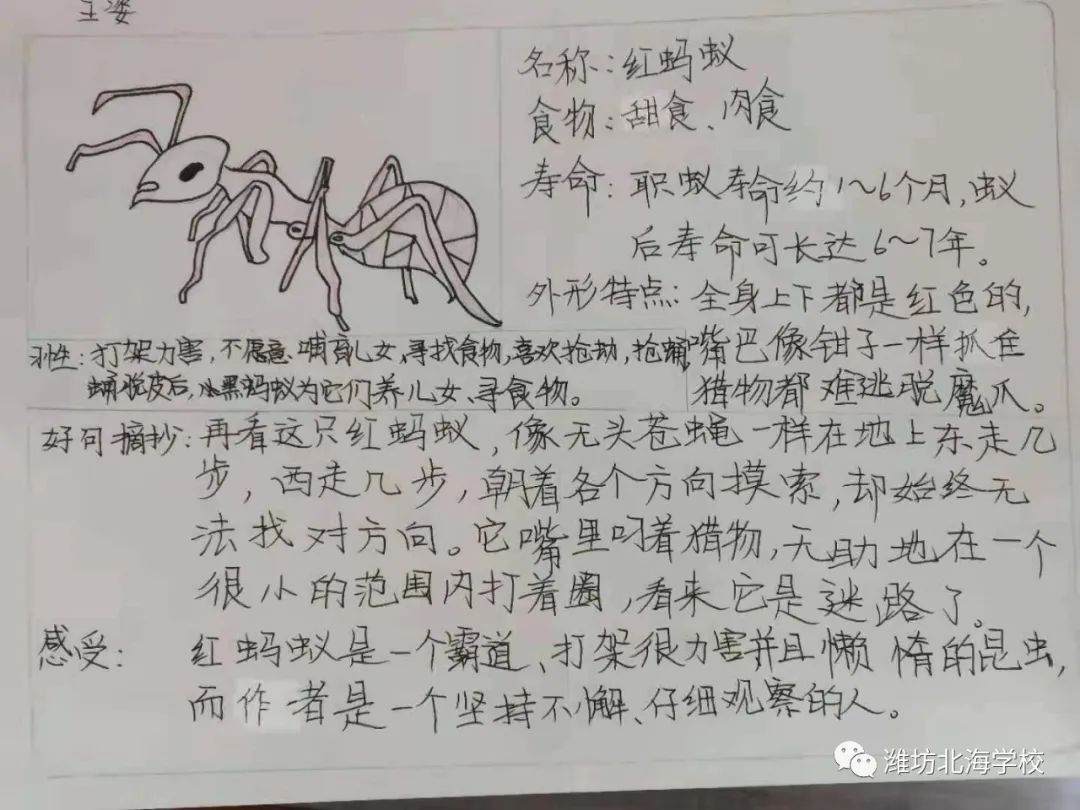 王姿
名称：红蚂蚁
食物：甜食、肉食
寿命：职蚁寿命约1～6个月，蚁
后寿命可长达6～7年。
外形特点：全身上下都是红色的，
嘴巴像钳子一样抓住
猎物都难逃脱魔爪。
习性：打架力害，不愿意哺育儿女、寻找食物，喜欢抢劫，抢蛹，
蛹脱皮后，小黑蚂蚁为它们养儿女、寻食物。
好句摘抄：再看这只红蚂蚁，像无头苍蝇一样在地上东走几
步，西走几步，朝着各个方向摸索，却始终无
法找对方向。它嘴里叼着猎物，无助地在一个
很小的范围内打着圈，看来它是迷路了。
感受：红蚂蚁是一个霸道、打架很力害并且懒惰的昆虫，
而作者是一个坚持不懈、仔细观察的人。
潍坊北海学校